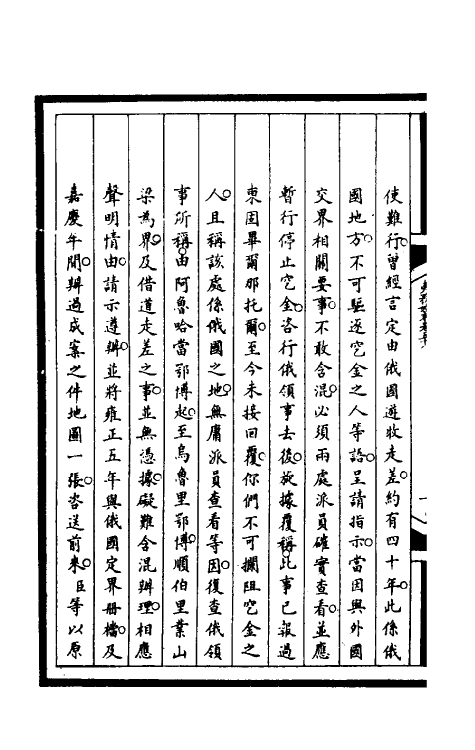 使難行曾經言定由俄國遊牧走差約有四十年此係俄
國地方不可驅逐空金之人等語呈請指示當因與外國
交界相關要事不敢含混必須兩處派員確實查看並應
暫行停止空金咨行俄領事去後旋據覆稱此事已報過
東固畢爾那托爾至今未接回覆你們不可攔阻空金之
人且稱該處係俄國之地無庸派員查看等因復查俄領
事所稱由阿魯哈當鄂博起至烏魯里鄂博順伯里葉山
梁為界及借道走差之事並無憑據礙難含混辦理相應
聲明情由請示遵辦並將雍正五年與俄國定界冊檔及
嘉慶年間辦過成案之件地圖一張咨送前來臣等以原